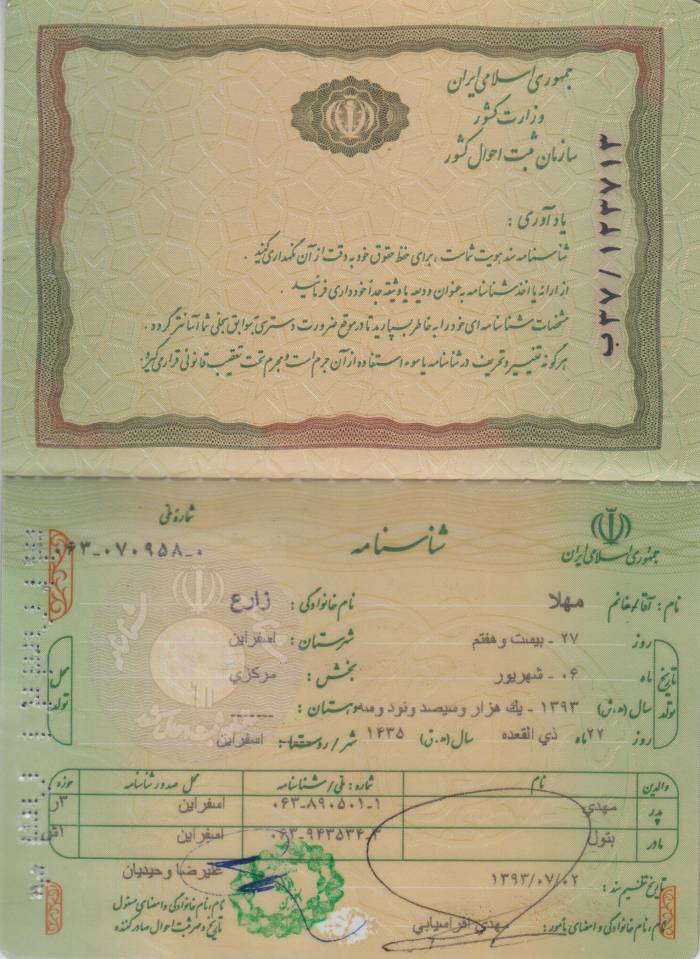 جمهوری اسلامی ایران
وزارت کشور
سازمان ثبت احوال کشور
ب۳۷/۱۲۳۷۱۳
یادآوری :
شناسنامه سند هویت شماست ، برای حفظ حقوق خود به دقت از آن نگهداری کنید .
از ارائه یا اخذ شناسنامه به عنوان ودیعه یا وثیقه جداً خودداری فرمائید .
مشخصات شناسنامه ای خود را به خاطر بسپارید تا در موقع ضرورت دسترسی به سوابق سجلی شما آسانتر گردد .
هرگونه تغییر و تحریف در شناسنامه یا سوء استفاده از آن جرم است و مجرم تحت تعقیب قانونی قرار می گیرد.
جمهوری اسلامی ایران
شناسنامه
شماره ملی
۰۶۳-۰۷۰۹۵۸-۰
نام : آقا/خانم مهلا نام خانوادگی : زارع
تاریخ تولد
روز ۲۷ - بیست و هفتم شهرستان : اسفراین
ماه ۰۶ - شهریور بخش : مرکزي
سال(ه.ش) ۱۳۹۳ - یك هزار و سیصد و نود و سه دهستان : -------
روز ۲۲ ماه ذي القعده سال(ه.ق) ۱۴۳۵ شهر/روستا : اسفراین
محل تولد
والدین نام شماره : ملی/شناسنامه محل صدور شناسنامه حوزه
پدر مهدي ۰۶۳-۸۹۰۵۰۱-۱ اسفراین ۳ر
مادر بتول اسفراین
تاریخ تنظیم سند : ۱۳۹۳/۰۷/۰۲
علیرضا وحیدیان
نام، نام خانوادگی و امضای مأمور: مهدي افراسیابي
نام، نام خانوادگی و امضای مسئول
تاریخ و مهر ثبت احوال صادرکننده